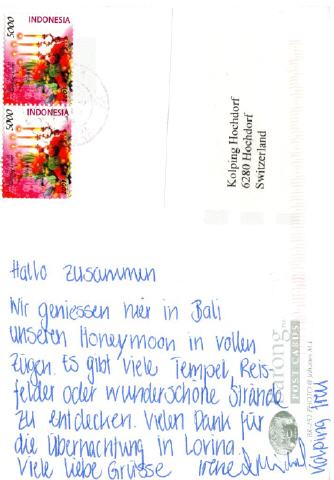 5000
INDONESIA
5000
INDONESIA
Kolping Hochdorf
6280 Hochdorf
Switzerland
Hallo zusammen
Wir geniessen hier in Bali
unseren Honeymoon in vollen
Zügen. Es gibt viele Tempel, Reis-
felder oder wunderschöne Strände
zu entdecken. Vielen Dank für
die Übernachtung in Lovina.
Viele liebe Grüsse Irene
POST CARDS